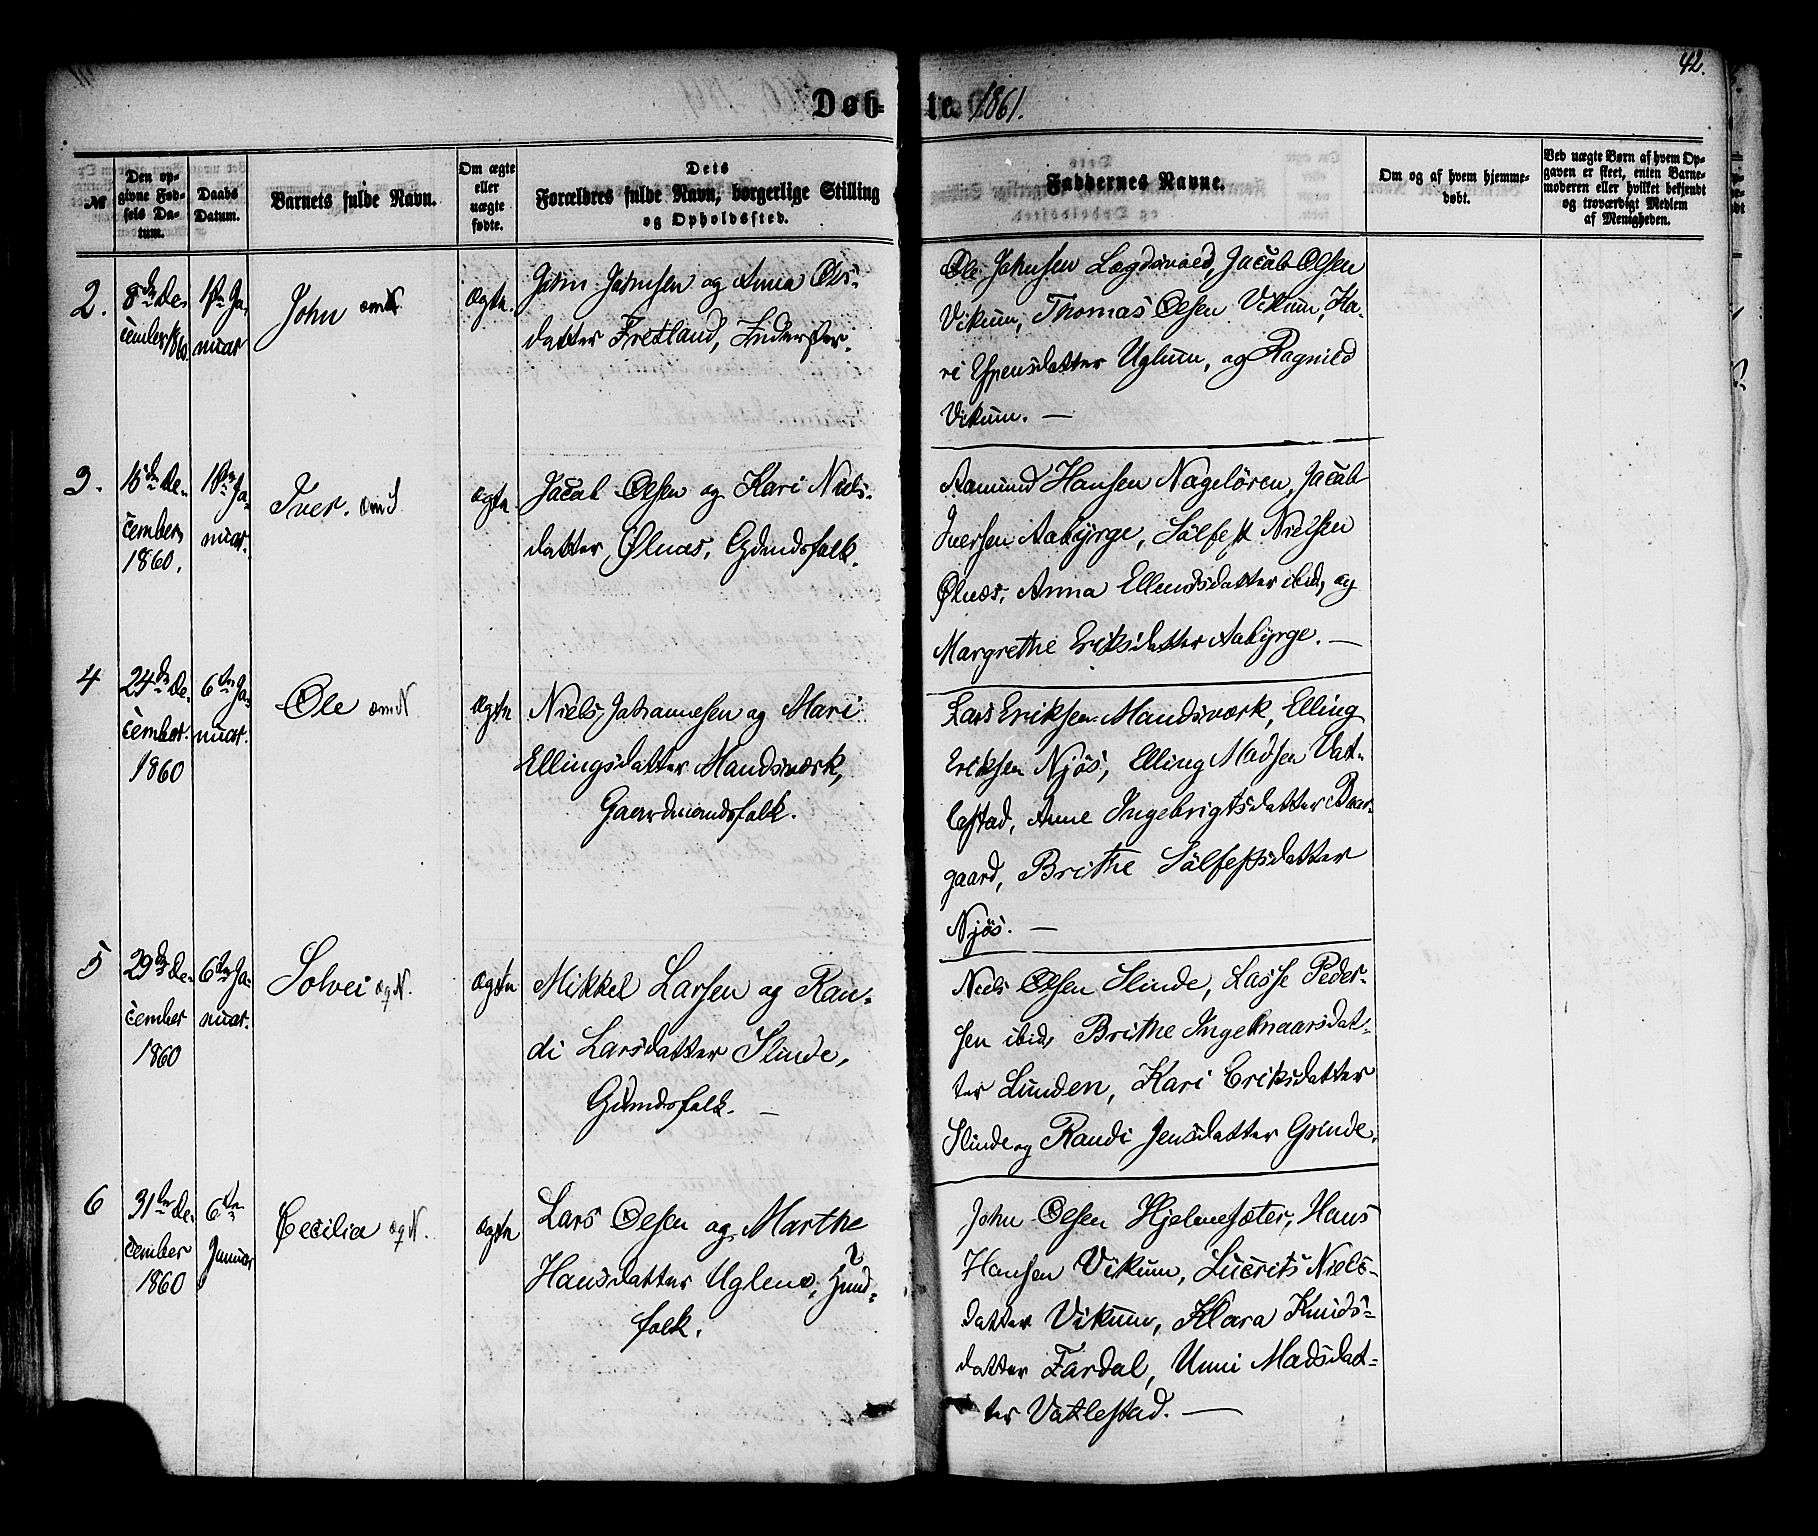 42.
Døb-te. 1861.
№
Den op-
givne Fød-
sels Da-
tum.
Daabs
Datum.
Barnets fulde Navn.
Om ægte
eller
uægte
fødte.
Dets
Forældres fulde Navn, borgerlige Stilling
og Opholdssted.
Faddernes Navne.
Om og af hvem hjemme-
døbt.
Ved uægte Børn af hvem Op-
gaven er skeet, enten Barne-
moderen eller hvilket bekjendt
og troværdigt Medlem
af Menigheden.
2.
8de De-
cember 1860
1ste Ja-
nuar
John
Ægte.
John Johnsen og Anna Ols-
datter Fretland, Inderster.
Ole Johnsen Lægdsvold, Jacob Olsen
Vikum, Thomas Olsen Vikum, Ka-
ri Espensdatter Uglum, og Ragnild
Vikum. —
3.
15de De-
cember
1860.
1ste Ja-
nuar.
Iver.
Ægte.
Jacob Olsen og Kari Niels-
datter Ølnæs, Gdmdsfolk.
Aamund Hansen Nagelören, Jacob
Iversen Aabyrge, Sölfest Nielsen
Ølnæs, Anna Ellendsdatter ibid, og
Margrethe Eriksdatter Aabyrge. —
4
24de De-
cember
1860
6te Ja-
nuar.
Ole
Ægte
Niels Johannesen og Mari
Ellingsdatter Mandsværk,
Gaardmandsfolk.
Lars Eriksen Mandsværk, Elling
Eriksen Njøs, Elling Madsen Vat-
lestad, Anne Ingebrigtsdatter Baar-
gaard, Brithe Sölfestsdatter
Njøs. —
5
29de De-
cember
1860
6te Ja-
nuar.
Solvei
Ægte
Mikkel Larsen og Ran-
di Larsdatter Slinde,
Gdmdsfolk. —
Niels Olsen Slinde, Lasse Peder-
sen ibid, Brithe Ingelnaarsdat-
ter Lunden, Kari Eriksdatter
Slinde og Randi Jensdatter Grinde.
6
31te De-
cember
1860
6te
Januar
Cecilia
Ægte
Lars Olsen og Marthe
Hansdatter Uglene,
folk.
John Olsen Hjelmesæter, Hans
Hansen Vikum, Lucrits Niels-
datter Vikum, Klara Knuds-
datter Fardal, Unni Madsdat-
ter Vatlestad. —